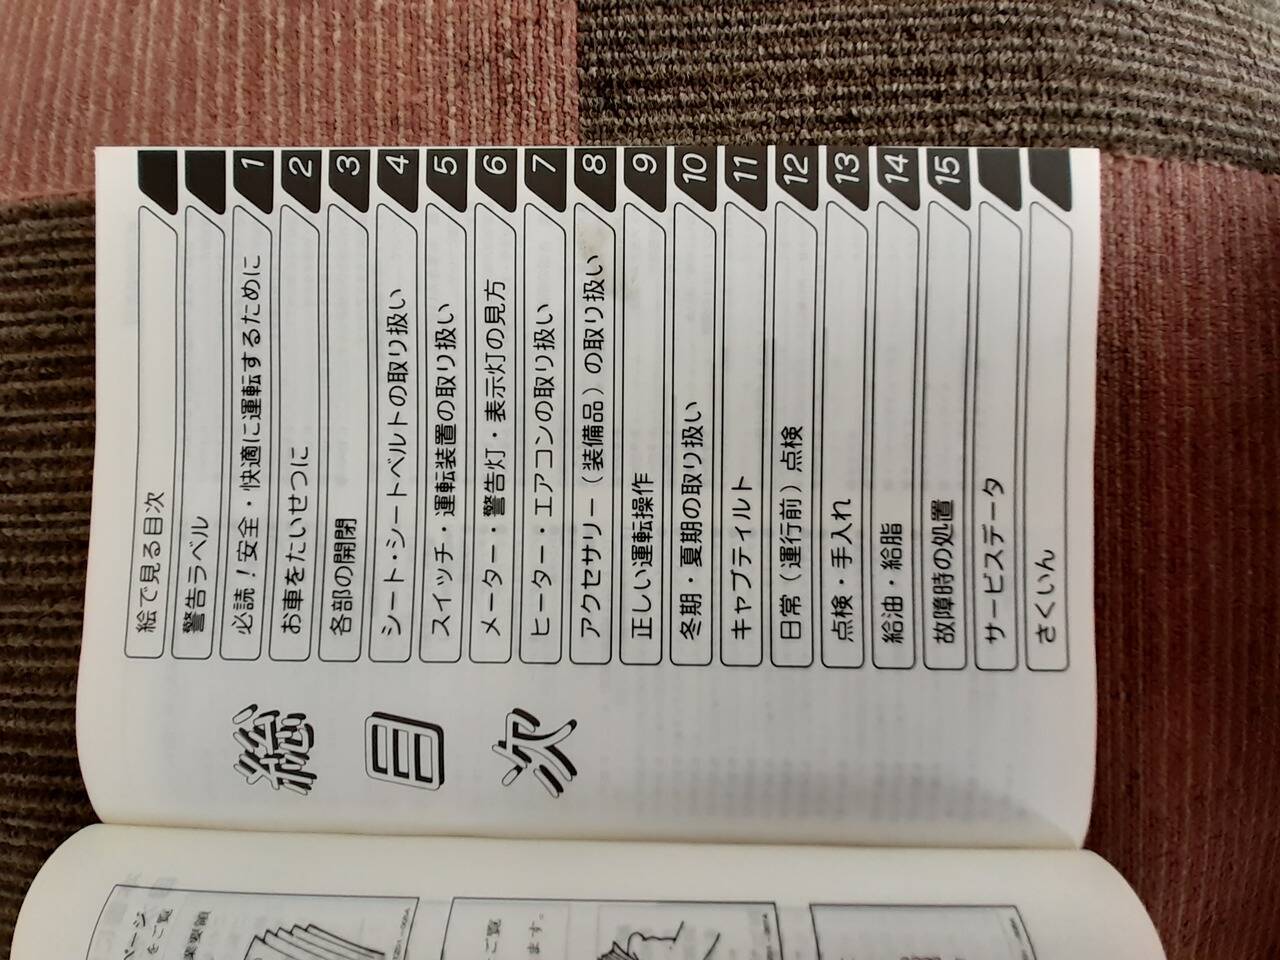 総目次
絵で見る目次
警告ラベル
必読！安全・快適に運転するために 1
お車をたいせつに 2
各部の開閉 3
シート・シートベルトの取り扱い 4
スイッチ・運転装置の取り扱い 5
メーター・警告灯・表示灯の見方 6
ヒーター・エアコンの取り扱い 7
アクセサリー（装備品）の取り扱い 8
正しい運転操作 9
冬期・夏期の取り扱い 10
キャブティルト 11
日常（運行前）点検 12
点検・手入れ 13
給油・給脂 14
故障時の処置 15
サービスデータ
さくいん
ページ
をご覧
業要領
ご覧
ます。